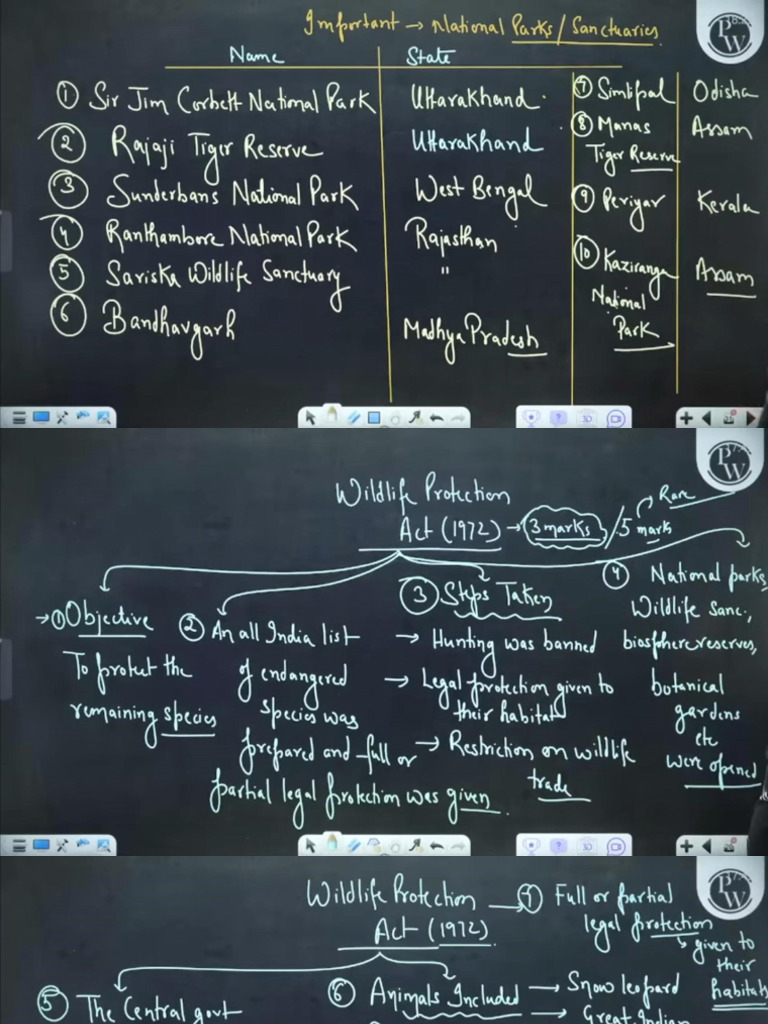 Important → National Parks / Sanctuaries
Name State
① Sir Jim Corbett National Park Uttarakhand
② Rajaji Tiger Reserve Uttarakhand
③ Sunderbans National Park West Bengal
④ Ranthambore National Park Rajasthan
⑤ Sariska Wildlife Sanctuary "
⑥ Bandhavgarh Madhya Pradesh
⑦ Simlipal Odisha
⑧ Manas Assam
Tiger Reserve
⑨ Periyar Kerala
⑩ Kaziranga Assam
National
Park
PW
Wildlife Protection
Act (1972) → 3 marks / 5 mark → Rare
→ ① Objective
To protect the
remaining species
② An all India list
of endangered
species was
prepared and full or
partial legal protection was given.
③ Steps Taken
→ Hunting was banned
→ Legal protection given to
their habitat
→ Restriction on wildlife
trade
④ National parks,
Wildlife Sanc.,
biosphere reserves,
botanical
gardens
etc
were opened
PW
Wildlife Protection
Act (1972)
→ ⑦ Full or partial
legal protection
→ given to
their
habitats
⑤ The Central govt
⑥ Animals Included → Snow leopard
→ Great Indian
PW